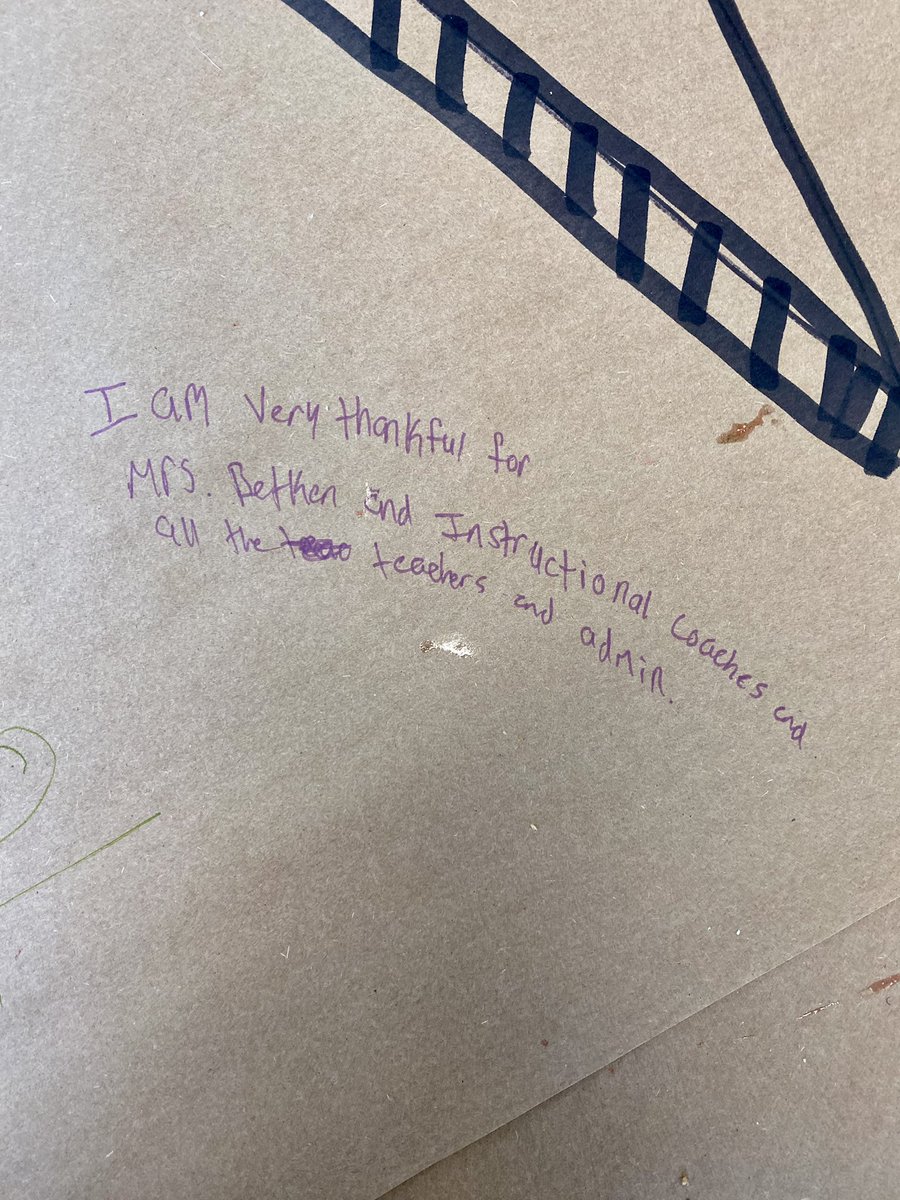 I am very thankful for
Mrs. Bethen and Instructional Coaches and
all the teachers and admin.